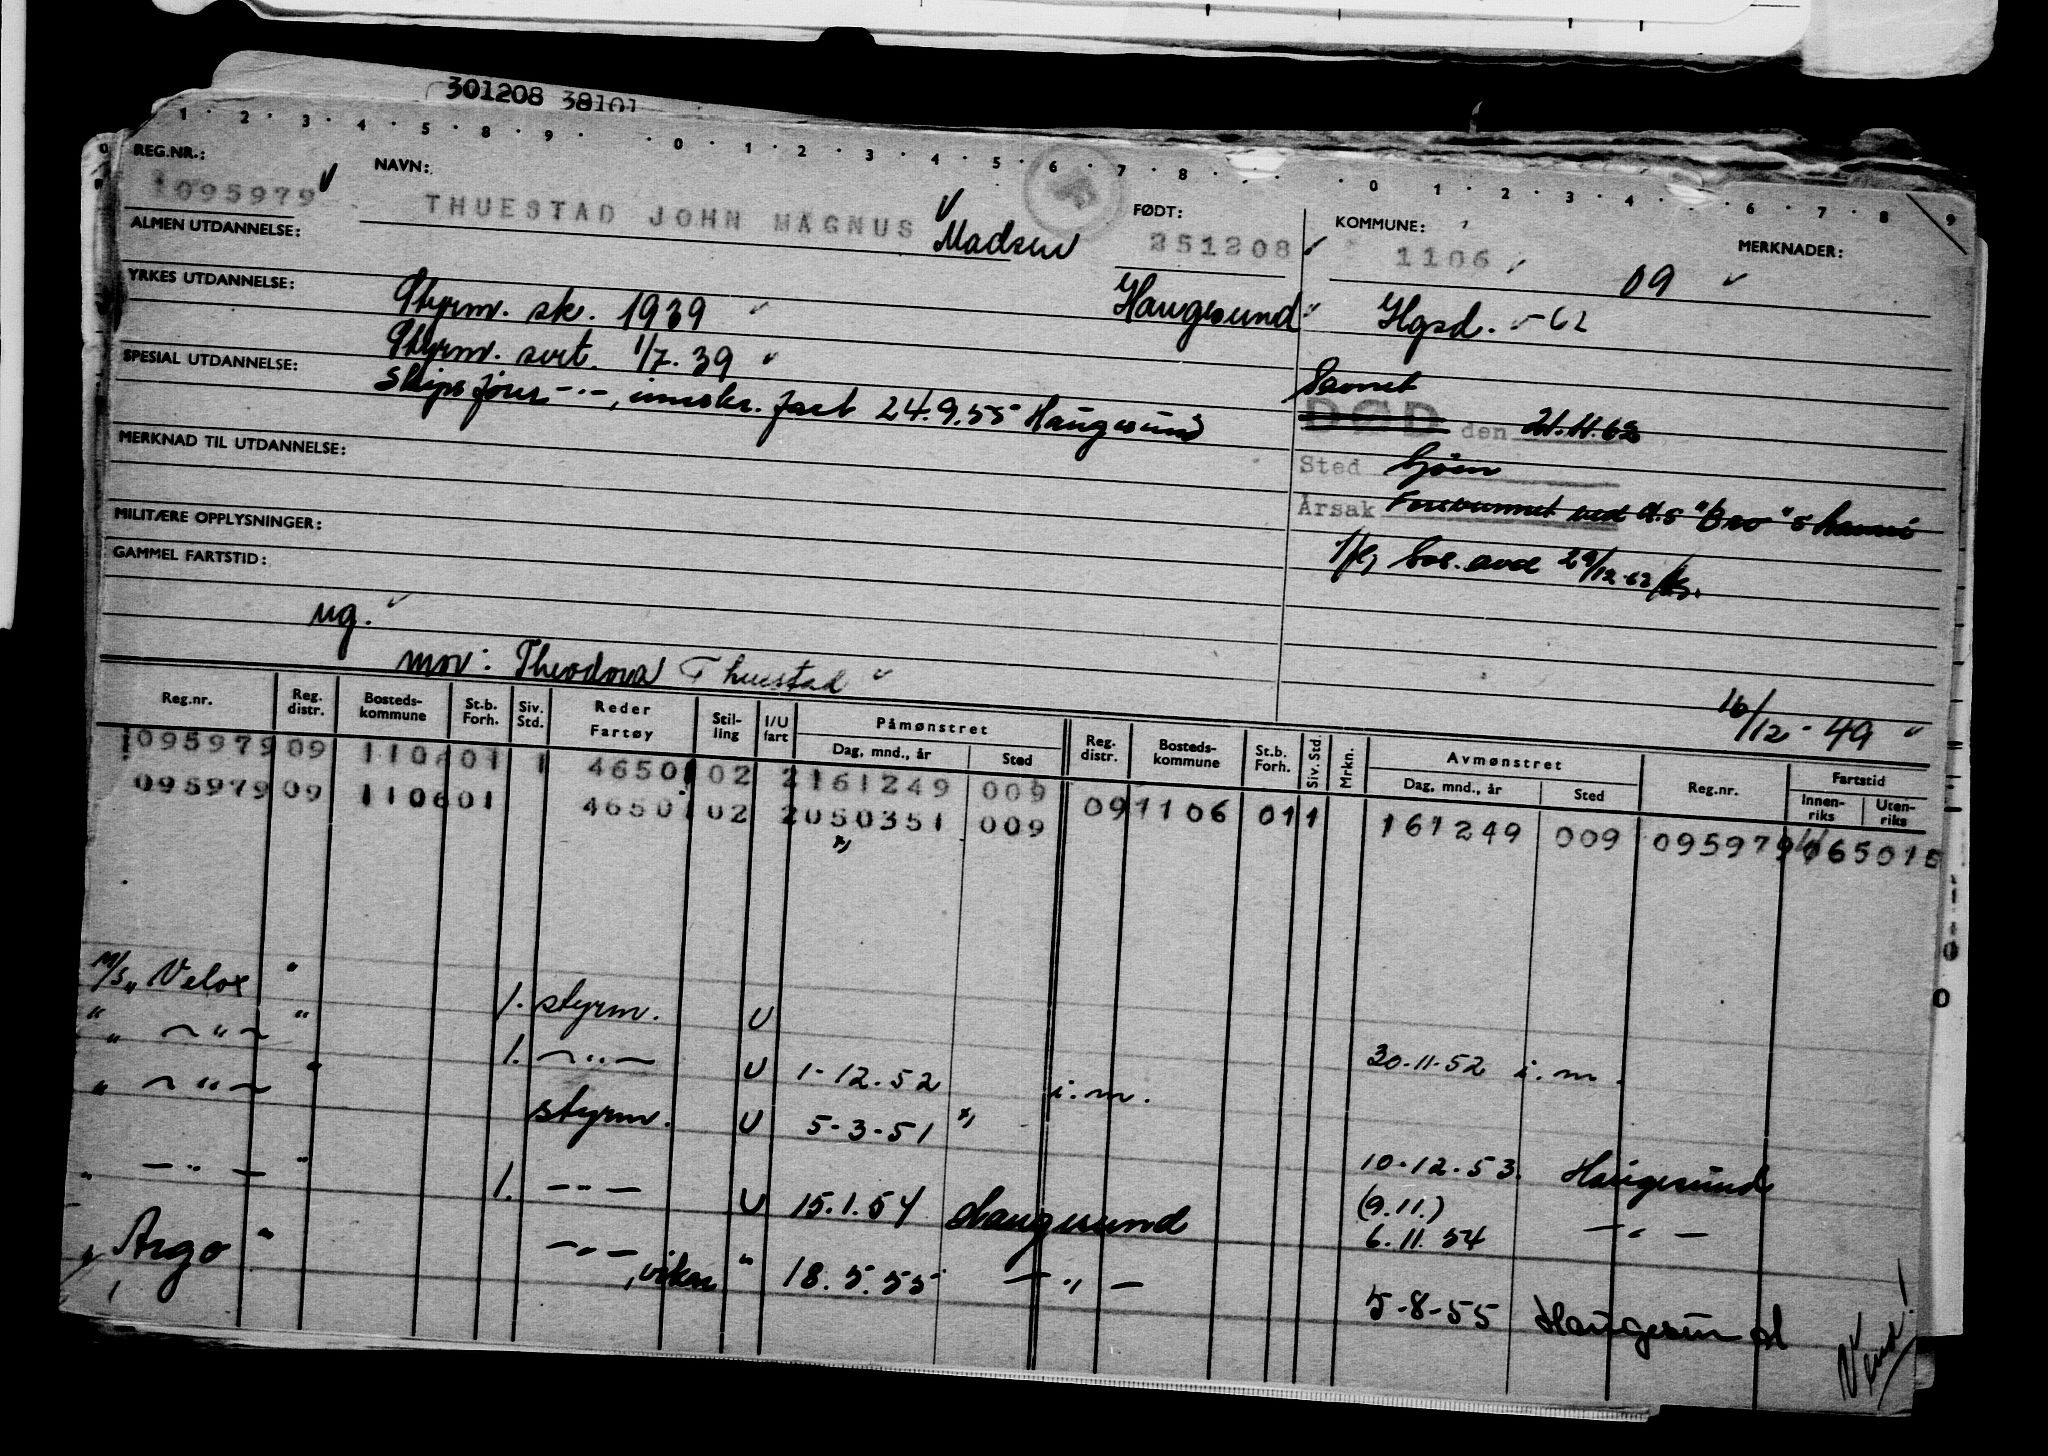 301208 38101
1 · 2 · 3 · 4 · 5 · 8 · 9 · · 0 · 1 · 2 · 3 · 4 · 5 · 6 · 7 · 8 · · · · 0 · 1 · 2 · 3 · 4 · · · 6 · 7 · 8 9
REG.NR.: NAVN: FØDT: KOMMUNE: MERKNADER:
1095979 THUESTAD JOHN MAGNUS Madsen 251208 1106 09
ALMEN UTDANNELSE:
YRKES UTDANNELSE: Styrm. sk. 1939 Haugesund Hgsd. -62
Styrm. sert. 1/7. 39
SPESIAL UTDANNELSE: Skipsfører -"-, innskr. fart 24.9.55 Haugesund
Savnet
DØD den 21.11.62
MERKNAD TIL UTDANNELSE: Sted Sjøen
Årsak Forsvunnet ved d.s "Bro"s havari
MILITÆRE OPPLYSNINGER:
avd 29/12-62
GAMMEL FARTSTID:
ug.
mor: Theodora Thuestad
16/12-49
Reg.nr. Reg. distr. Bosteds-kommune St.b. Forh. Siv. Std. Reder Fartøy Stil-ling I/U fart Påmønstret Dag, mnd., år Sted Reg. distr. Bosteds-kommune St.b. Forh. Siv. Std. Mrkn. Avmønstret Dag, mnd., år Sted Reg.nr. Fartstid Innen-riks Uten-riks
1095979 09 110601 1 46501 02 2161249 009
095979 09 110601 46501 02 2050351 009 09 1106 01 1 161249 009 095979 065015
x)
M/S „ Velox " 1. styrm. U 30.11.52 i.m.
" „ ~ " ~ " 1. ~"~ U 1-12.52 i.m.
„ ~ " ~ " styrm. U 5-3-51 x) 10-12.53. Haugesund
(9.11.)
„ — " — " 1. -"- U 15.1.54 Haugesund 6.11.54 — " —
„ Argo " -"-, vikar " 18.5.55 — „ — 5-8-55 Haugesund
Vend!